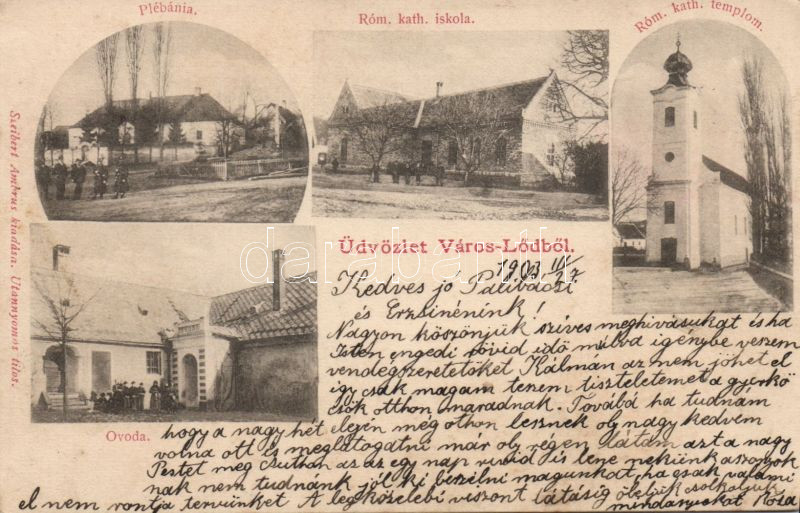 Plébánia.
Róm. kath. iskola.
Róm. kath. templom.
Szeibert Ambrus kiadása. Utánnyomás tilos.
Üdvözlet Város-Lődből.
darabanth
1903 II/27
Kedves jó Palibácsi
és Erzsinénink!
Nagyon köszönjük szíves meghivásukat és ha
Isten engedi rövid idő mulva igénybe veszem
vendégszeretetöket Kálmán az nem jöhet el
így csak magam teszem tiszteletemet a gyerkő
csök otthon maradnak. Továbá ha tudnám
Ovoda.
hogy a nagy hét elején még othon lesznek oly nagy kedvem
volna ott és meglátogatni már oly régen látam azt a nagy
Pestet meg csuthán az az egy nap rövid is lene nekünk asszonyok
nak nem tudnánk jól ki beszélni magunkat, ha csak valami
el nem rontja tervünket A legközelebbi viszont látásig öleljük csókoljuk
mindanyiokat Róza